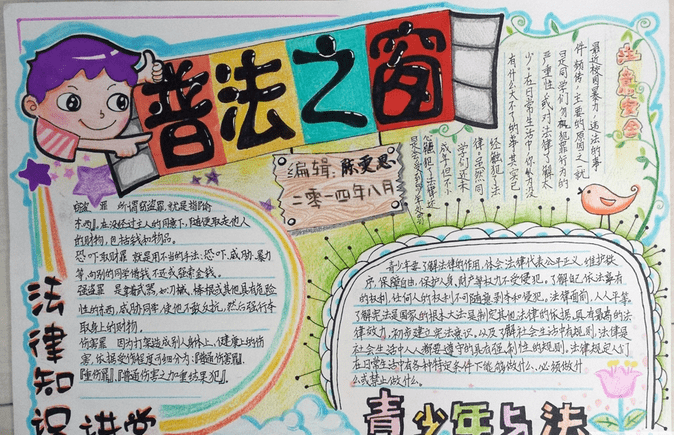 普法之窗
编辑：陈雯思
二零一四年八月
注意安全
最近校园暴力，违法的事
件频传，主要的原因之一就
是同学们忽视犯罪行为的
严重性，或对法律了解太
少，在日常生活中，你认为没
有什么大不了的事，其实已
经触犯了法
律，虽然同
学们还未
成年但不
盗罪 所谓窃盗罪，就是指偷
东西，在没经过主人的同意下，随便取走他人
的财物，包括钱和物品。
恐吓取财罪 就是用不当的手法：恐吓、威胁、暴力
等，向别的同学借钱不还或勒索金钱。
强盗罪 是拿武器，如刀械、棒棍或其他具有危险
性的东西，威胁同学，使他不敢反抗，然后强行夺
取身上的财物。
伤害罪 因为打架造成别人身体上、健康上的伤
害，依据受伤程度可细分为：『普通伤害罪』、
『重伤罪』、『普通伤害之加重结果犯』。
青少年要了解法律的作用，体会法律代表公平正义，维护秩
序，保障自由，保护人身、财产等权力不受侵犯，了解自己依法享有
的权利，任何人的权利不可随意剥夺和侵犯，法律面前，人人平等，
了解宪法是国家的根本大法是制定其他法律的依据，具有最高的法
律效力，初步建立宪法意识，以及了解社会生活中有规则，法律是
社会生活中人人都要遵守的具有强制性的规则，法律规定人们
在日常生活中有各种特定条件下能够做什么、必须做什
么或禁止做什么。
法律知识讲堂
青少年与法